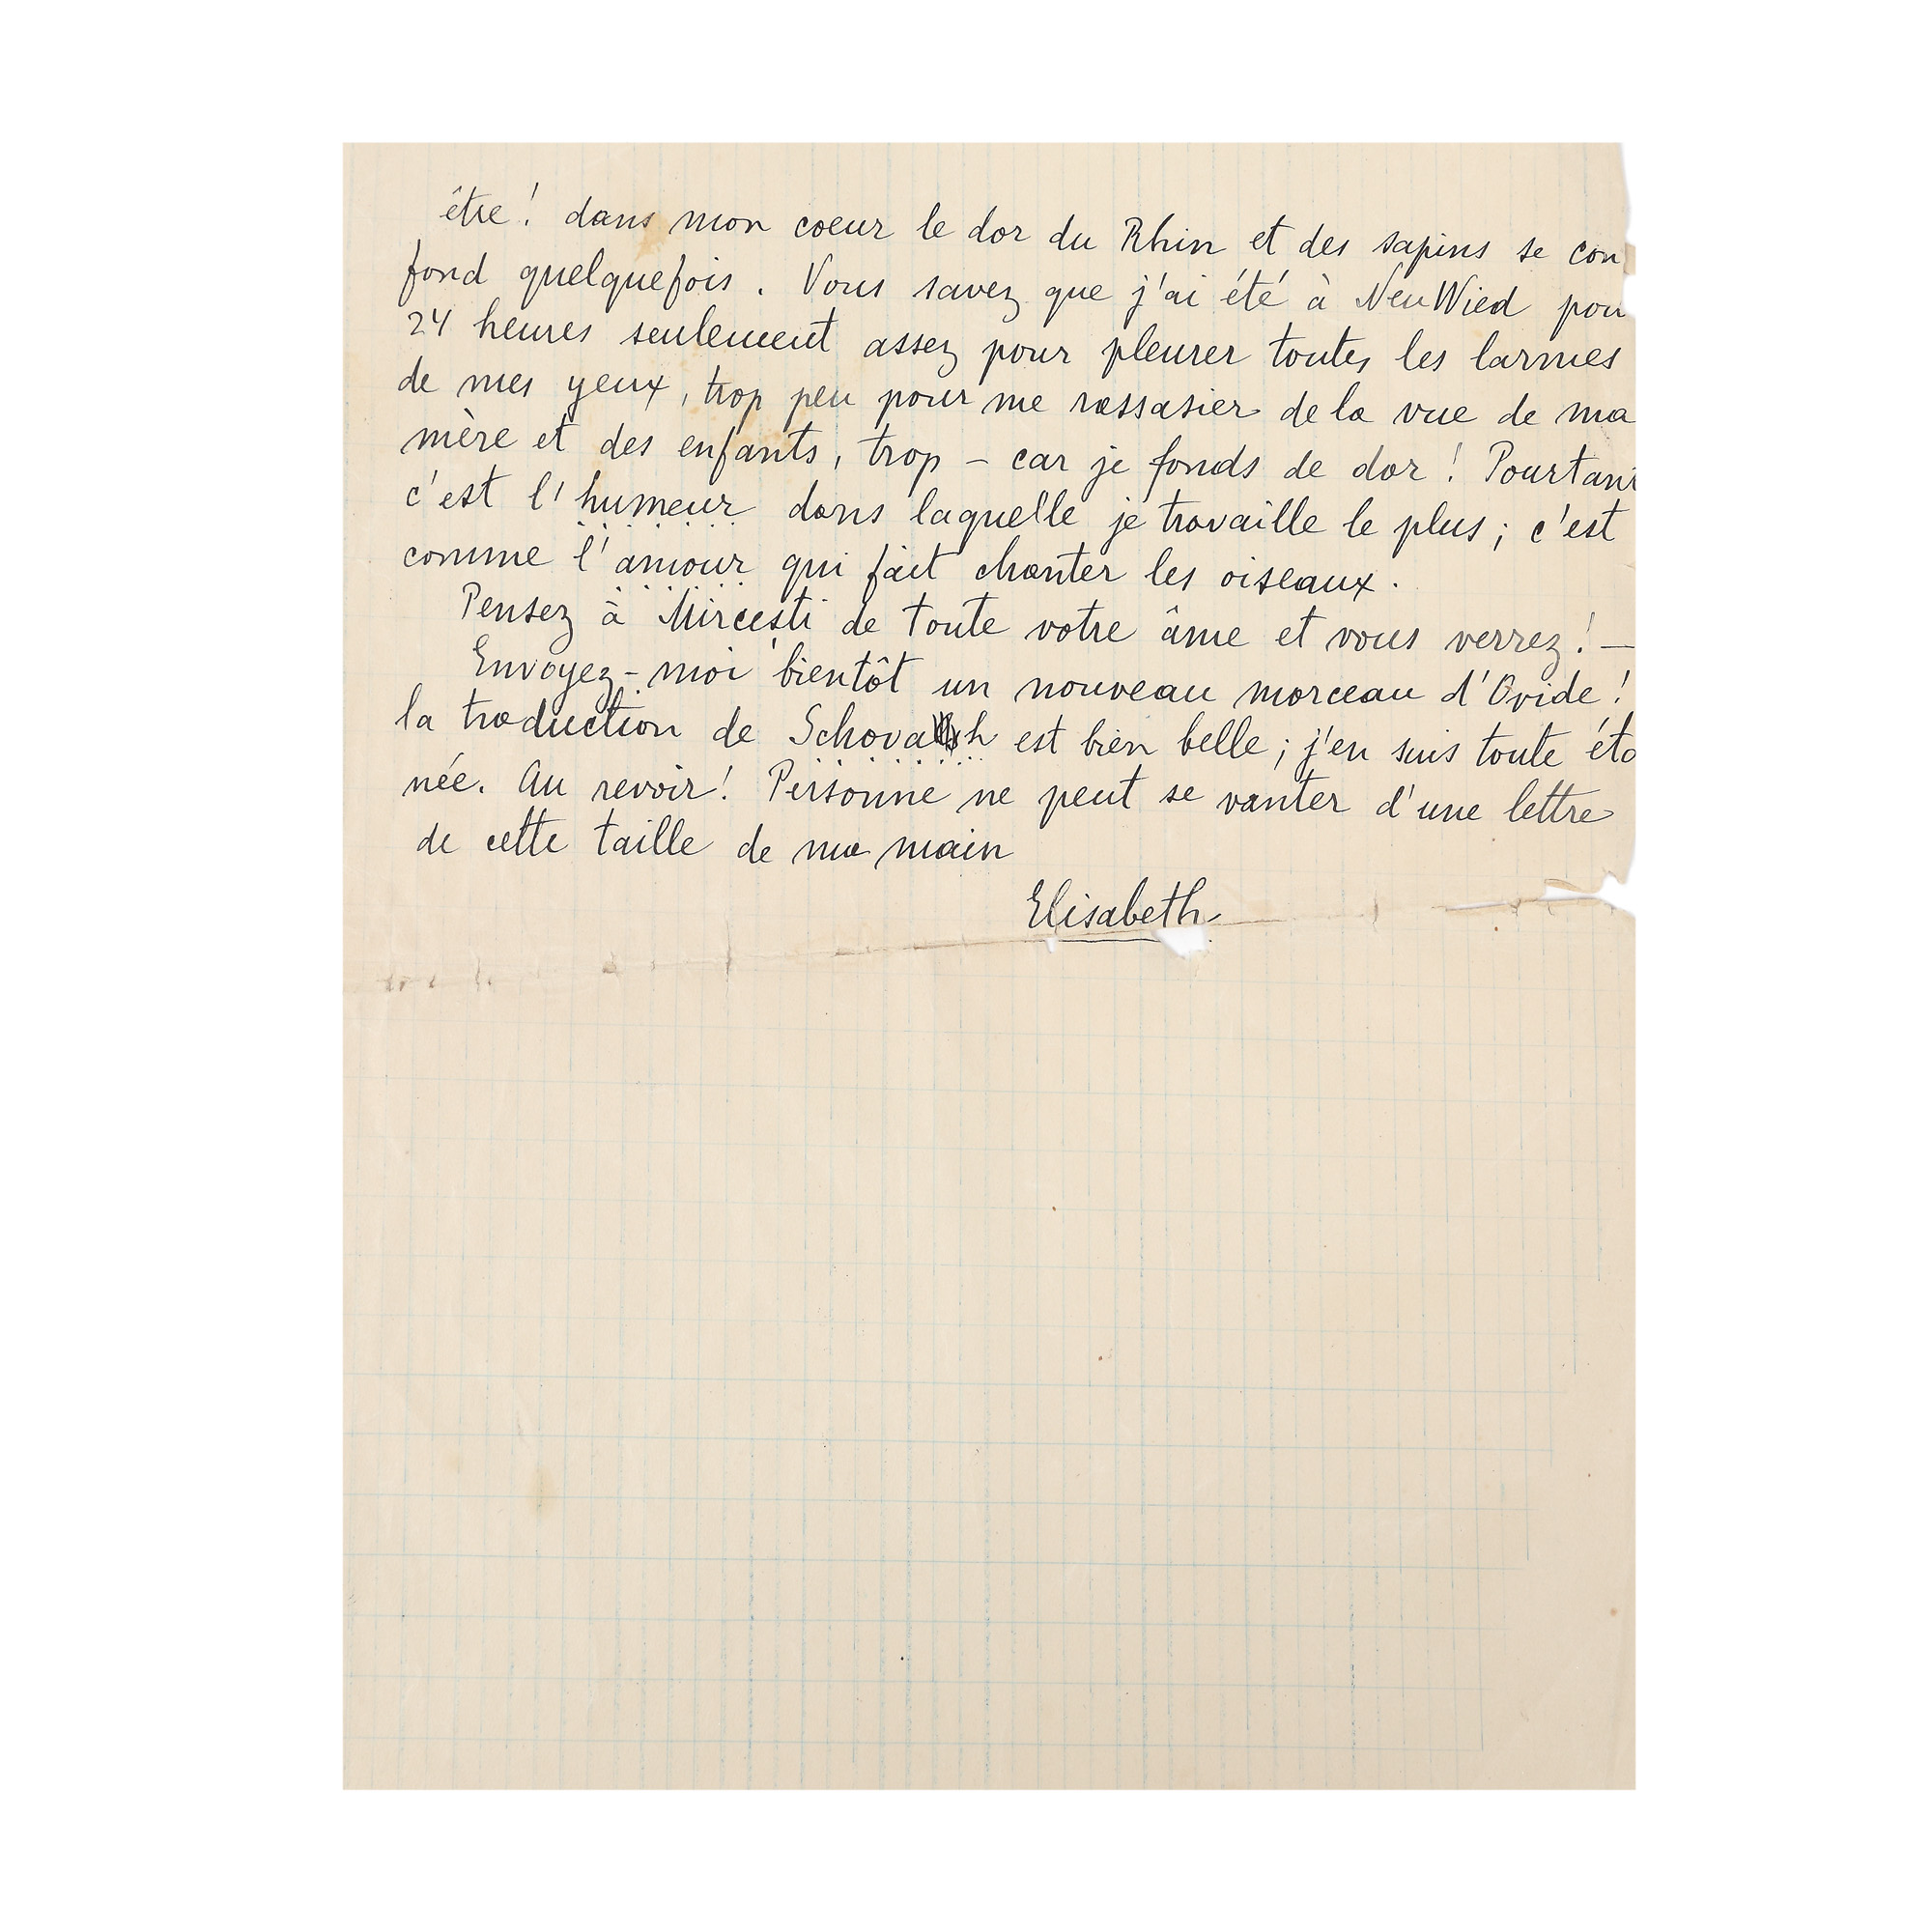 être! dans mon coeur le dor du Rhin et des sapins se con
fond quelquefois. Vous savez que j'ai été à NeuWied pou
24 heures seulement assez pour pleurer toutes les larmes
de mes yeux, trop peu pour me rassasier de la vue de ma
mère et des enfants, trop – car je fonds de dor! Pourtant
c'est l'humeur dans laquelle je travaille le plus; c'est
comme l'amour qui fait chanter les oiseaux.
Pensez à Mircesti de toute votre âme et vous verrez! —
Envoyez-moi bientôt un nouveau morceau d'Ovide!
la traduction de est bien belle; j'en suis toute éto
née. Au revoir! Personne ne peut se vanter d'une lettre
de cette taille de ma main
Elisabeth